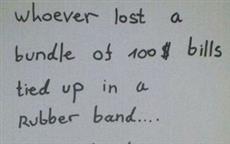 whoever lost a
bundle of 100$ bills
tied up in a
Rubber band....